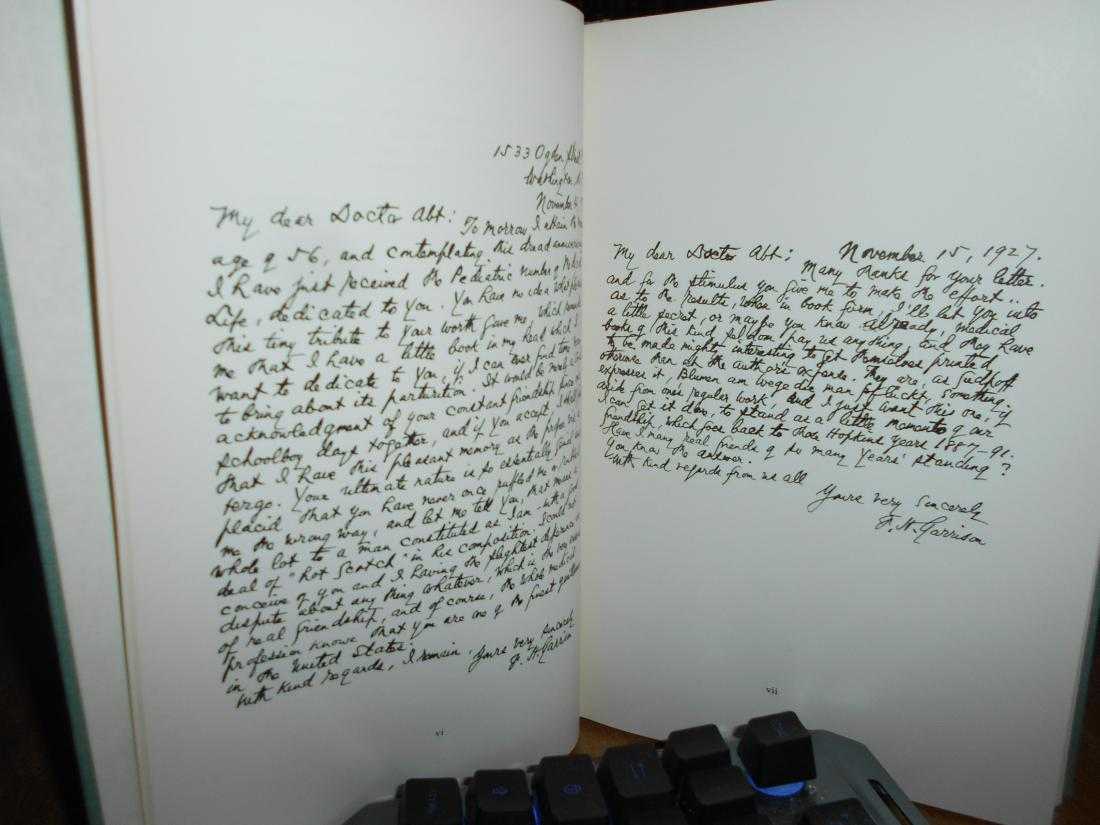 1533 Ogden
Washington,
November
My dear Doctor Abt: To morrow I attain
age of 56, and contemplating this dread anniversary
I have just received the Pediatric Number of
Life, dedicated to You. You have no idea what
this tiny tribute to your worth gave me, which
me that I have a little book in my head which I
want to dedicate to you, if I can ever find time
to bring about its parturition. It would be merely
acknowledgment of your constant friendship since
schoolboy days together, and if you accept, I shall
that I have this pleasant memory as the
tergo. Your ultimate nature is so essentially good
placid that you have never once ruffled me or
me the wrong way, and let me tell you, that means a
whole lot to a man constituted as I am - with a good
deal of "hot Scotch" in his composition. I could not
conceive of you and I having the slightest difference or
dispute about any thing whatever, which is the very
of real friendship, and of course, the whole medical
profession knows that you are one of the finest
in the United States.
With kind regards, I remain, Yours very sincerely
F. H. Garrison
vi
My dear Doctor Abt: November 15, 1927.
Many thanks for your letter.
and for the stimulus you give me to make the effort..
as to the results, when in book form, I'll let you into
a little secret, or maybe you know already, medical
books of this kind seldom pay us anything, and they have
to be made mighty interesting to get themselves printed
otherwise than at the author's expense. They are, as Sudhoff
expresses it, Blumen am Wege die man pflückt, something
aside from one's regular work, and I just want this one, if
I can get it done, to stand as a little memento of our
friendship, which goes back to those Hopkins years 1887-91.
Have I many real friends of so many years' standing?
You know the answer.
With kind regards from us all
Yours very sincerely
F. H. Garrison
vii